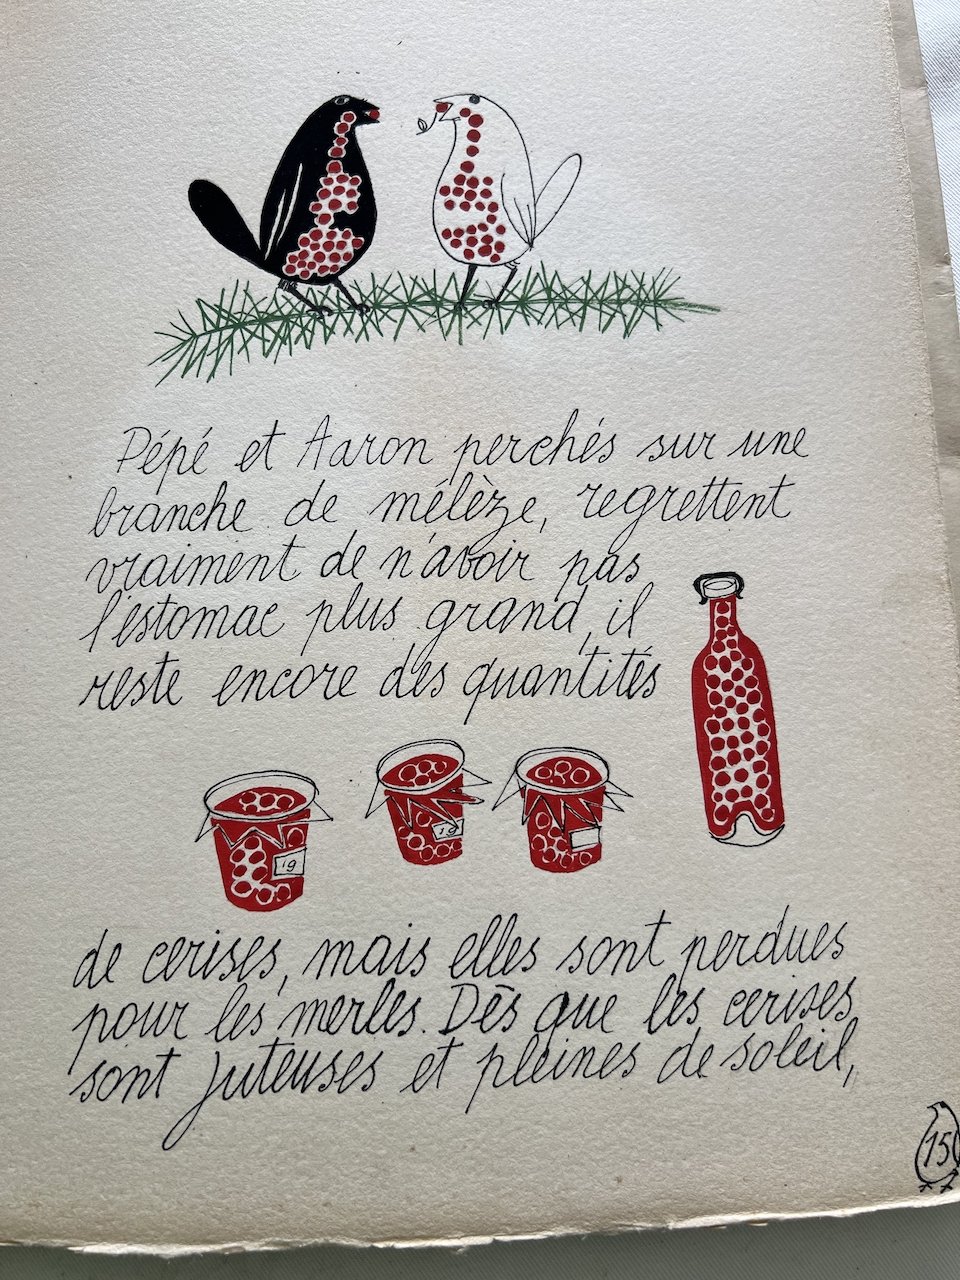 Pépé et Aaron perchés sur une
branche de mélèze, regrettent
vraiment de n'avoir pas
l'estomac plus grand, il
reste encore des quantités
19
19
de cerises, mais elles sont perdues
pour les merles. Dès que les cerises
sont juteuses et pleines de soleil,
15